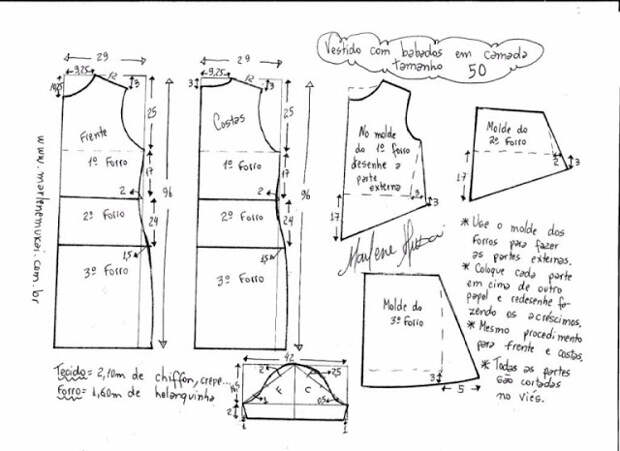 Vestido com babados em camada
tamanho 50
29
9,25
12
3
Frente
25
1º Forro
17
2
96
2º Forro
24
1,5
3º Forro
29
9,25
3
12
3
Costas
25
1º Forro
17
2
96
2º Forro
24
1,5
3º Forro
3
No molde
do 1º forro
desenhe a
parte
externa
3
3
17
Molde do
2º Forro
2
3
17
Molde do
3º Forro
3
5
* Use o molde dos
forros para fazer
as partes externas.
* Coloque cada parte
em cima de outro
papel e redesenhe fa-
zendo os acréscimos.
* Mesmo procedimento
para frente e costas.
* Todas as partes
são cortadas
no viés.
Marlene Mukai
www.marlenemukai.com.br
Tecido = 2,10m de chiffon, crepe...
Forro = 1,60m de helanquinha
42
2
2,5
F
C
1
0,5
2
1
1